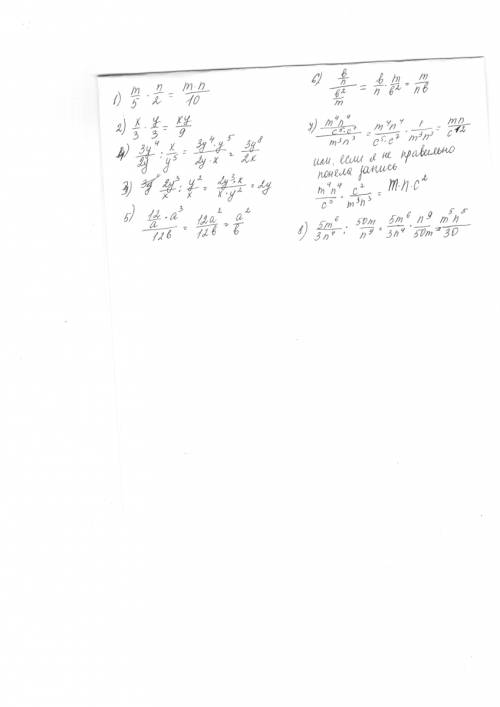 1) m/5 · n/2 = m·n/10
2) x/3 · y/3 = xy/9
4) 3y⁴/2y : x/y⁵ = 3y⁴·y⁵/2y·x = 3y⁸/2x
3) 2y³/x : y²/x = 2y³·x/x·y² = 2y
5) 12/a · a³/12в = 12a²/12в = a²/в
6) в/n / в²/m = в/n · m/в² = m/nв
7) m⁴n⁴/c⁵·c⁷ / m³n³ = m⁴n⁴/c⁵·c⁷ · 1/m³n³ = mn/c12
или, если я не правильно
поняла запись.
m⁴n⁴/c⁵ · c²/m³n³ = m·n·c²
8) 5m⁶/3n⁴ : 50m/n⁹ = 5m⁶/3n⁴ · n⁹/50m = m⁵n⁵/30